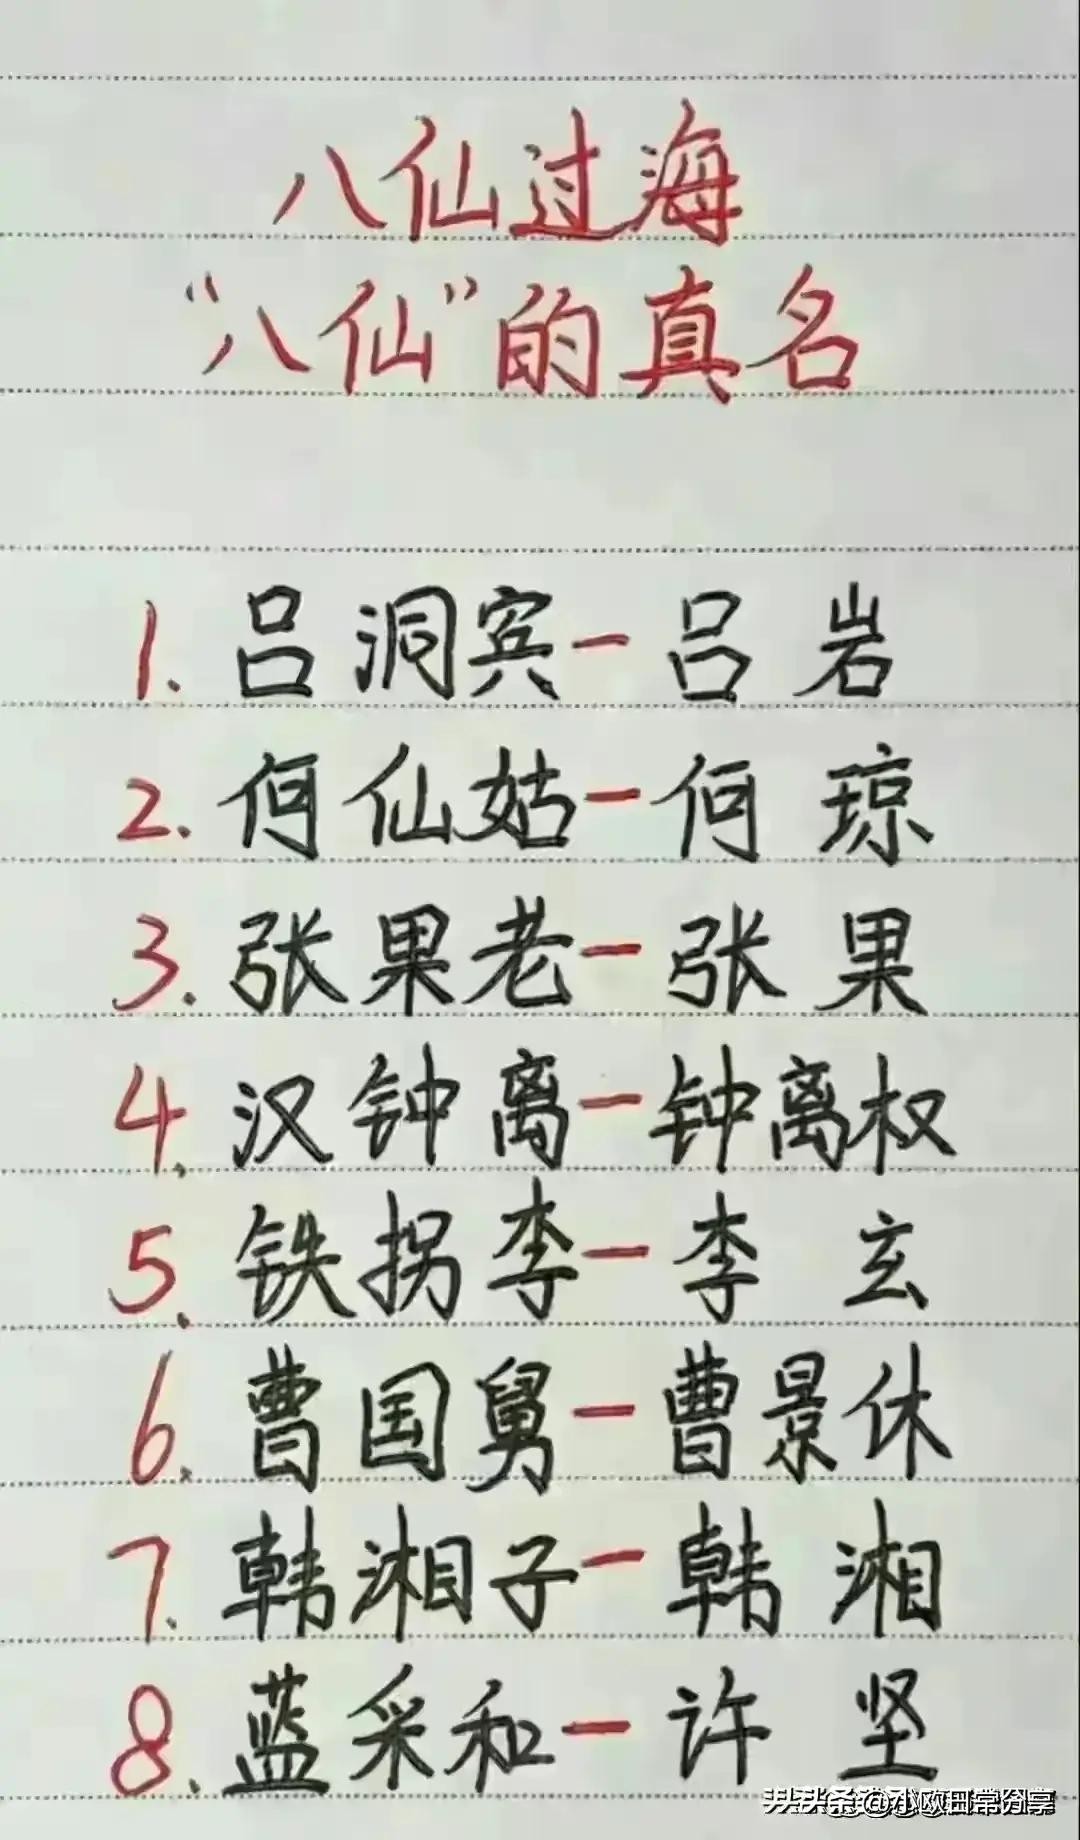 八仙过海
“八仙”的真名
1. 吕洞宾—吕岩
2. 何仙姑—何琼
3. 张果老—张果
4. 汉钟离—钟离权
5. 铁拐李—李玄
6. 曹国舅—曹景休
7. 韩湘子—韩湘
8. 蓝采和—许坚
头条 @小欧日常分享